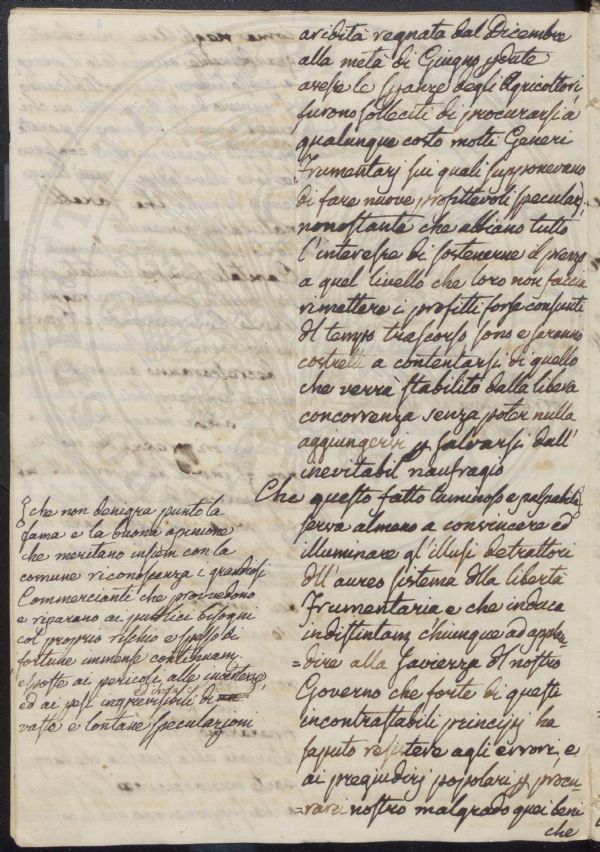 aridità regnata dal Dicembre
alla metà di Giugno p date
avesse le speranze degli Agricoltori
furono solleciti di procurarsi a
qualunque costo molti Generi
Frumentarj sui quali supponevano
di fare nuove profittevoli speculazj
nonostante che abbiano tutto
l'interesse di sostenerne il prezzo
a quel livello che loro non faccia
rimettere i profitti forse consunti
dl tempo trascorso sono e saranno
costretti a contentarsi di quello
che verrà stabilito dalla libera
concorrenza senza poter nulla
aggiungervi p salvarsi dall'
inevitabil naufragio
Che questo fatto luminoso e palpabile
serva almeno a convincere ed
illuminare gl'illusi detrattori
dll'aureo sistema dlla libertà
Frumentaria e che induca
indistintam chiunque ad applau-
=dire alla Saviezza dl nostro
Governo che forte di questi
incontrastabili principj ha
saputo resistere agli errori, e
ai pregiudizj popolari p procu-
=rarci nostro malgrado quei beni
che
che non denigra punto la
fama e la buona opinione
che meritano insiem con la
comune riconoscenza i grandiosi
Commercianti che provvedono
e riparano ai pubblici bisogni
col proprio rischio e spesso di
fortune immense continuam
esposte ai pericoli alle incertezze
ed ai pesi imprevisibili di
vaste e lontane speculazioni